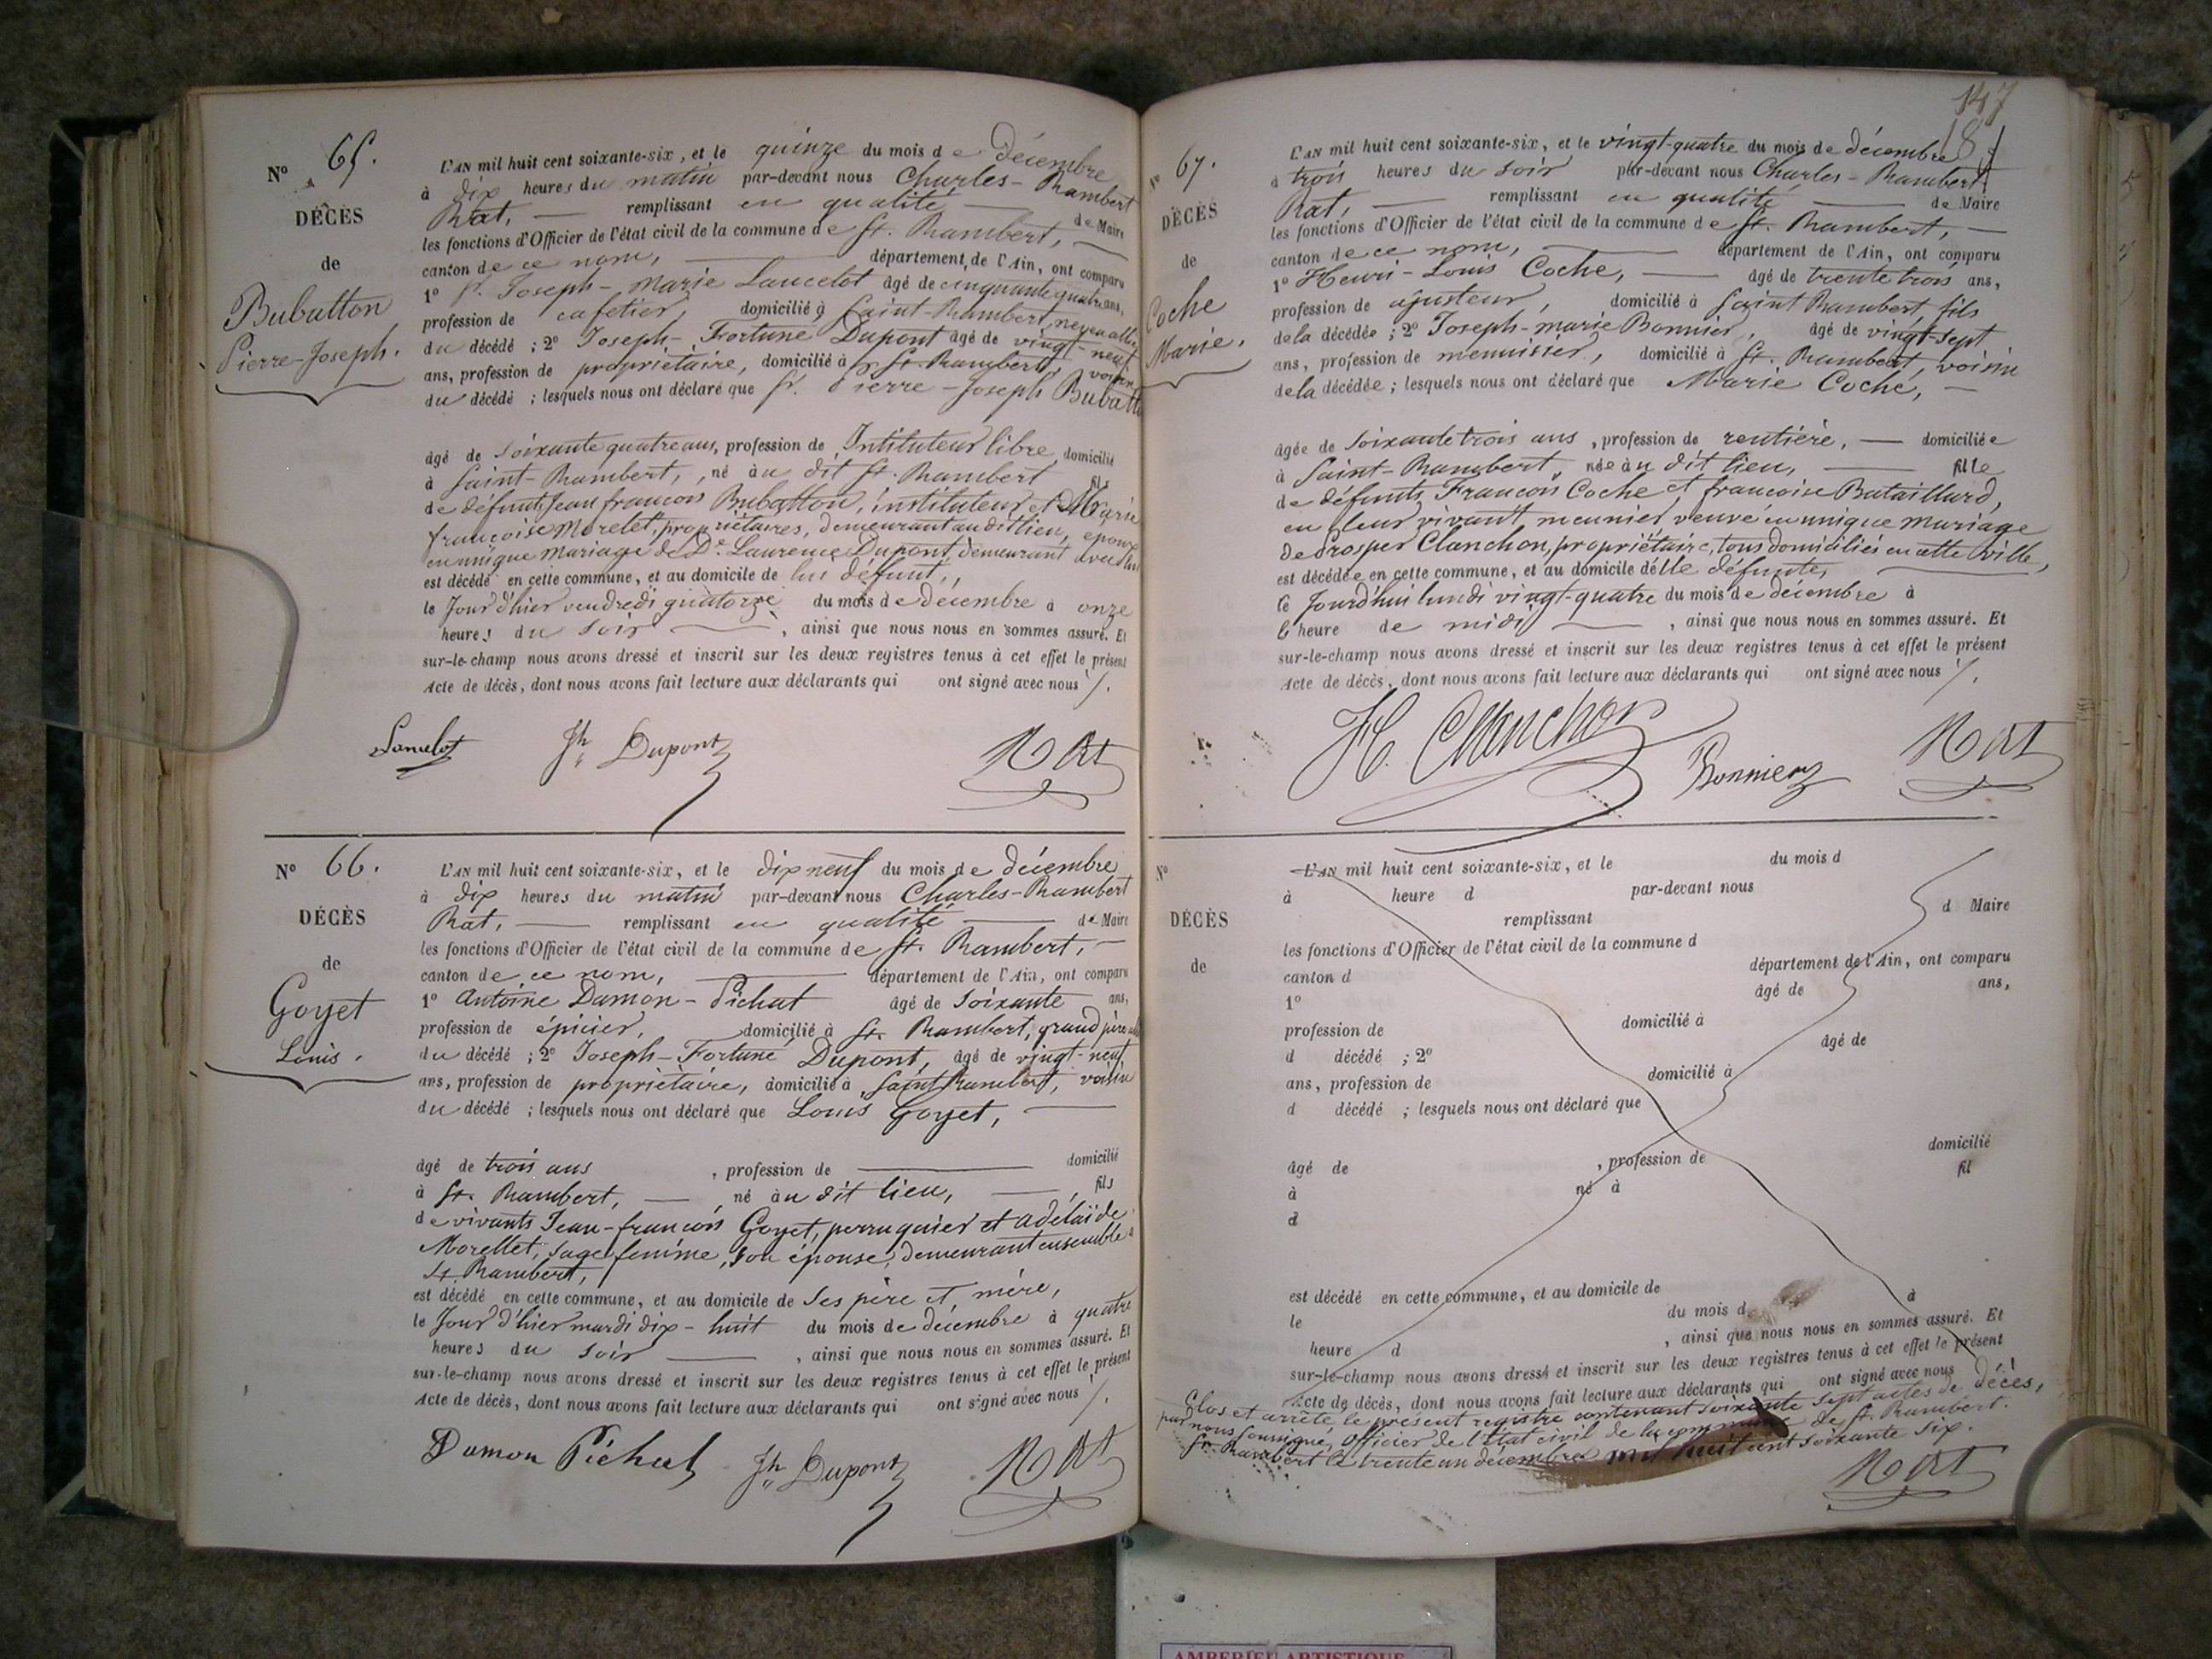 Nº 65.
DÉCÈS
de
Bubatton
Pierre-Joseph.
L'AN mil huit cent soixante-six, et le quinze du mois de décembre
à dix heures du matin par-devant nous Charles-Rambert
Rat, remplissant en qualité de Maire
les fonctions d'Officier de l'état civil de la commune de St. Rambert,
canton de ce nom, département de l'Ain, ont comparu
1º Sr. Joseph-Marie Lancelot âgé de cinquante quatre ans,
profession de cafetier, domicilié à Saint-Rambert, neveu allié
du décédé ; 2º Joseph-Fortuné Dupont âgé de vingt-neuf
ans, profession de propriétaire, domicilié à St. Rambert, voisin
du décédé ; lesquels nous ont déclaré que Sr. Pierre-Joseph Bubatton
âgé de soixante quatre ans, profession de Intituteur libre, domicilié
à Saint-Rambert, né au dit St. Rambert fils
de défunts Jean françois Bubatton, instituteur et Marie
françoise Morelet, propriétaires, demeurant au dit lieu, époux
en unique mariage de De. Laurence Dupont, demeurant avec lui
est décédé en cette commune, et au domicile de lui défunt,
le Jour d'hier vendredi quatorze du mois de décembre à onze
heures du soir, ainsi que nous nous en sommes assuré. Et
sur-le-champ nous avons dressé et inscrit sur les deux registres tenus à cet effet le présent
Acte de décès, dont nous avons fait lecture aux déclarants qui ont signé avec nous /.
Lancelot Jh Dupont Rat
Nº 66.
DÉCÈS
de
Goyet
Louis.
L'AN mil huit cent soixante-six, et le dix neuf du mois de décembre
à dix heures du matin par-devant nous Charles-Rambert
Rat, remplissant en qualité de Maire
les fonctions d'Officier de l'état civil de la commune de St. Rambert,
canton de ce nom, département de l'Ain, ont comparu
1º Antoine Damon-Pichat âgé de soixante ans,
profession de épicier, domicilié à St. Rambert, grand père
du décédé ; 2º Joseph-Fortuné Dupont, âgé de vingt-neuf
ans, profession de propriétaire, domicilié à Saint Rambert, voisin
du décédé ; lesquels nous ont déclaré que Louis Goyet,
âgé de trois ans, profession de domicilié
à St. Rambert, né au dit lieu, fils
de vivants Jean-françois Goyet, perruquier et adélaïde
Morellet, sage femme, son épouse, demeurant ensemble à
St. Rambert,
est décédé en cette commune, et au domicile de ses père et mère,
le Jour d'hier mardi dix-huit du mois de décembre à quatre
heures du soir, ainsi que nous nous en sommes assuré. Et
sur-le-champ nous avons dressé et inscrit sur les deux registres tenus à cet effet le présent
Acte de décès, dont nous avons fait lecture aux déclarants qui ont signé avec nous /.
Damon Pichat Jh Dupont Rat
147
Nº 67.
DÉCÈS
de
Coche
Marie.
L'AN mil huit cent soixante-six, et le vingt-quatre du mois de décembre
à trois heures du soir par-devant nous Charles-Rambert
Rat, remplissant en qualité de Maire
les fonctions d'Officier de l'état civil de la commune de St. Rambert,
canton de ce nom, département de l'Ain, ont comparu
1º Henri-Louis Coche, âgé de trente trois ans,
profession de ajusteur, domicilié à Saint Rambert, fils
de la décédée ; 2º Joseph-marie Bonnier, âgé de vingt-sept
ans, profession de menuisier, domicilié à St. Rambert, voisin
de la décédée ; lesquels nous ont déclaré que Marie Coche,
âgée de soixante trois ans, profession de rentière, domiciliée
à Saint-Rambert, née au dit lieu, fille
de défunts François Coche et françoise Bataillard,
en leur vivant, meunier, veuve en unique mariage
de Prosper Clanchon, propriétaire, tous domiciliés en cette ville,
est décédée en cette commune, et au domicile d'elle défunte,
le Jourd'hui lundi vingt-quatre du mois de décembre à
l'heure de midi, ainsi que nous nous en sommes assuré. Et
sur-le-champ nous avons dressé et inscrit sur les deux registres tenus à cet effet le présent
Acte de décès, dont nous avons fait lecture aux déclarants qui ont signé avec nous /.
H. Clanchon Bonnier Rat
Nº
DÉCÈS
de
L'AN mil huit cent soixante-six, et le du mois d
à heure d par-devant nous
remplissant d Maire
les fonctions d'Officier de l'état civil de la commune d
canton d département de l'Ain, ont comparu
1º âgé de ans,
profession de domicilié à
d décédé ; 2º âgé de
ans, profession de domicilié à
d décédé ; lesquels nous ont déclaré que
âgé de , profession de domicilié
à né à fil
d
est décédé en cette commune, et au domicile de
le du mois d à
heure d , ainsi que nous nous en sommes assuré. Et
sur-le-champ nous avons dressé et inscrit sur les deux registres tenus à cet effet le présent
Acte de décès, dont nous avons fait lecture aux déclarants qui ont signé avec nous
Clos et arrêté le présent registre contenant soixante sept actes de décès,
par nous soussigné, Officier de l'Etat civil de la commune de St. Rambert.
St. Rambert le trente un décembre mil huit cent soixante six.
Rat
AMBERIEU ARTISTIQUE